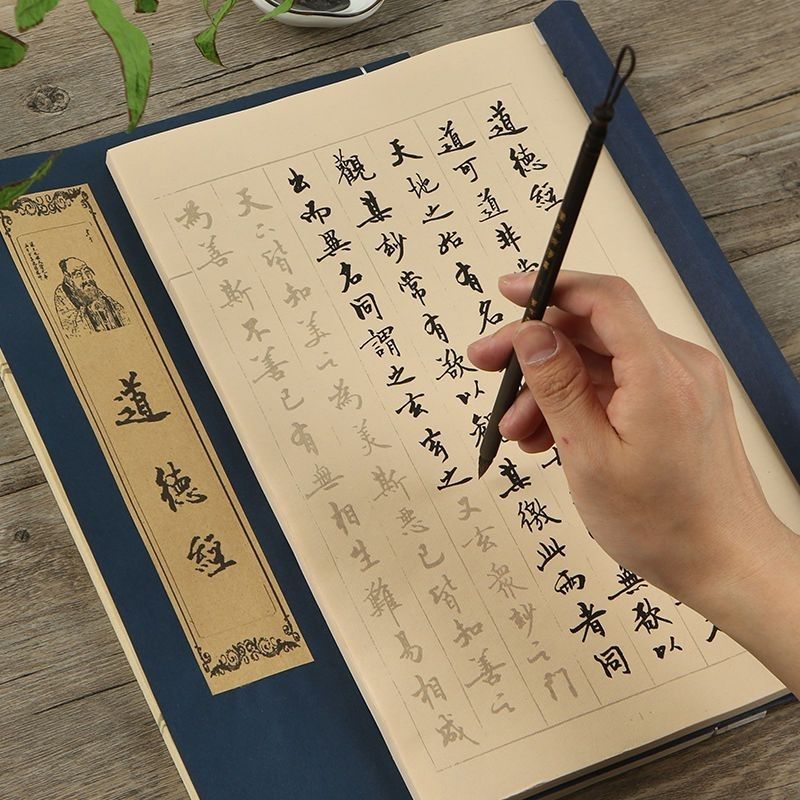 道德經
道可道非常
天地之始有名 無欲以
觀其妙常有欲以觀其徼此兩者同
出而異名同謂之玄玄之又玄眾妙之門
天下皆知美之為美斯惡已皆知善之
為善斯不善已有無相生難易相成
道德經